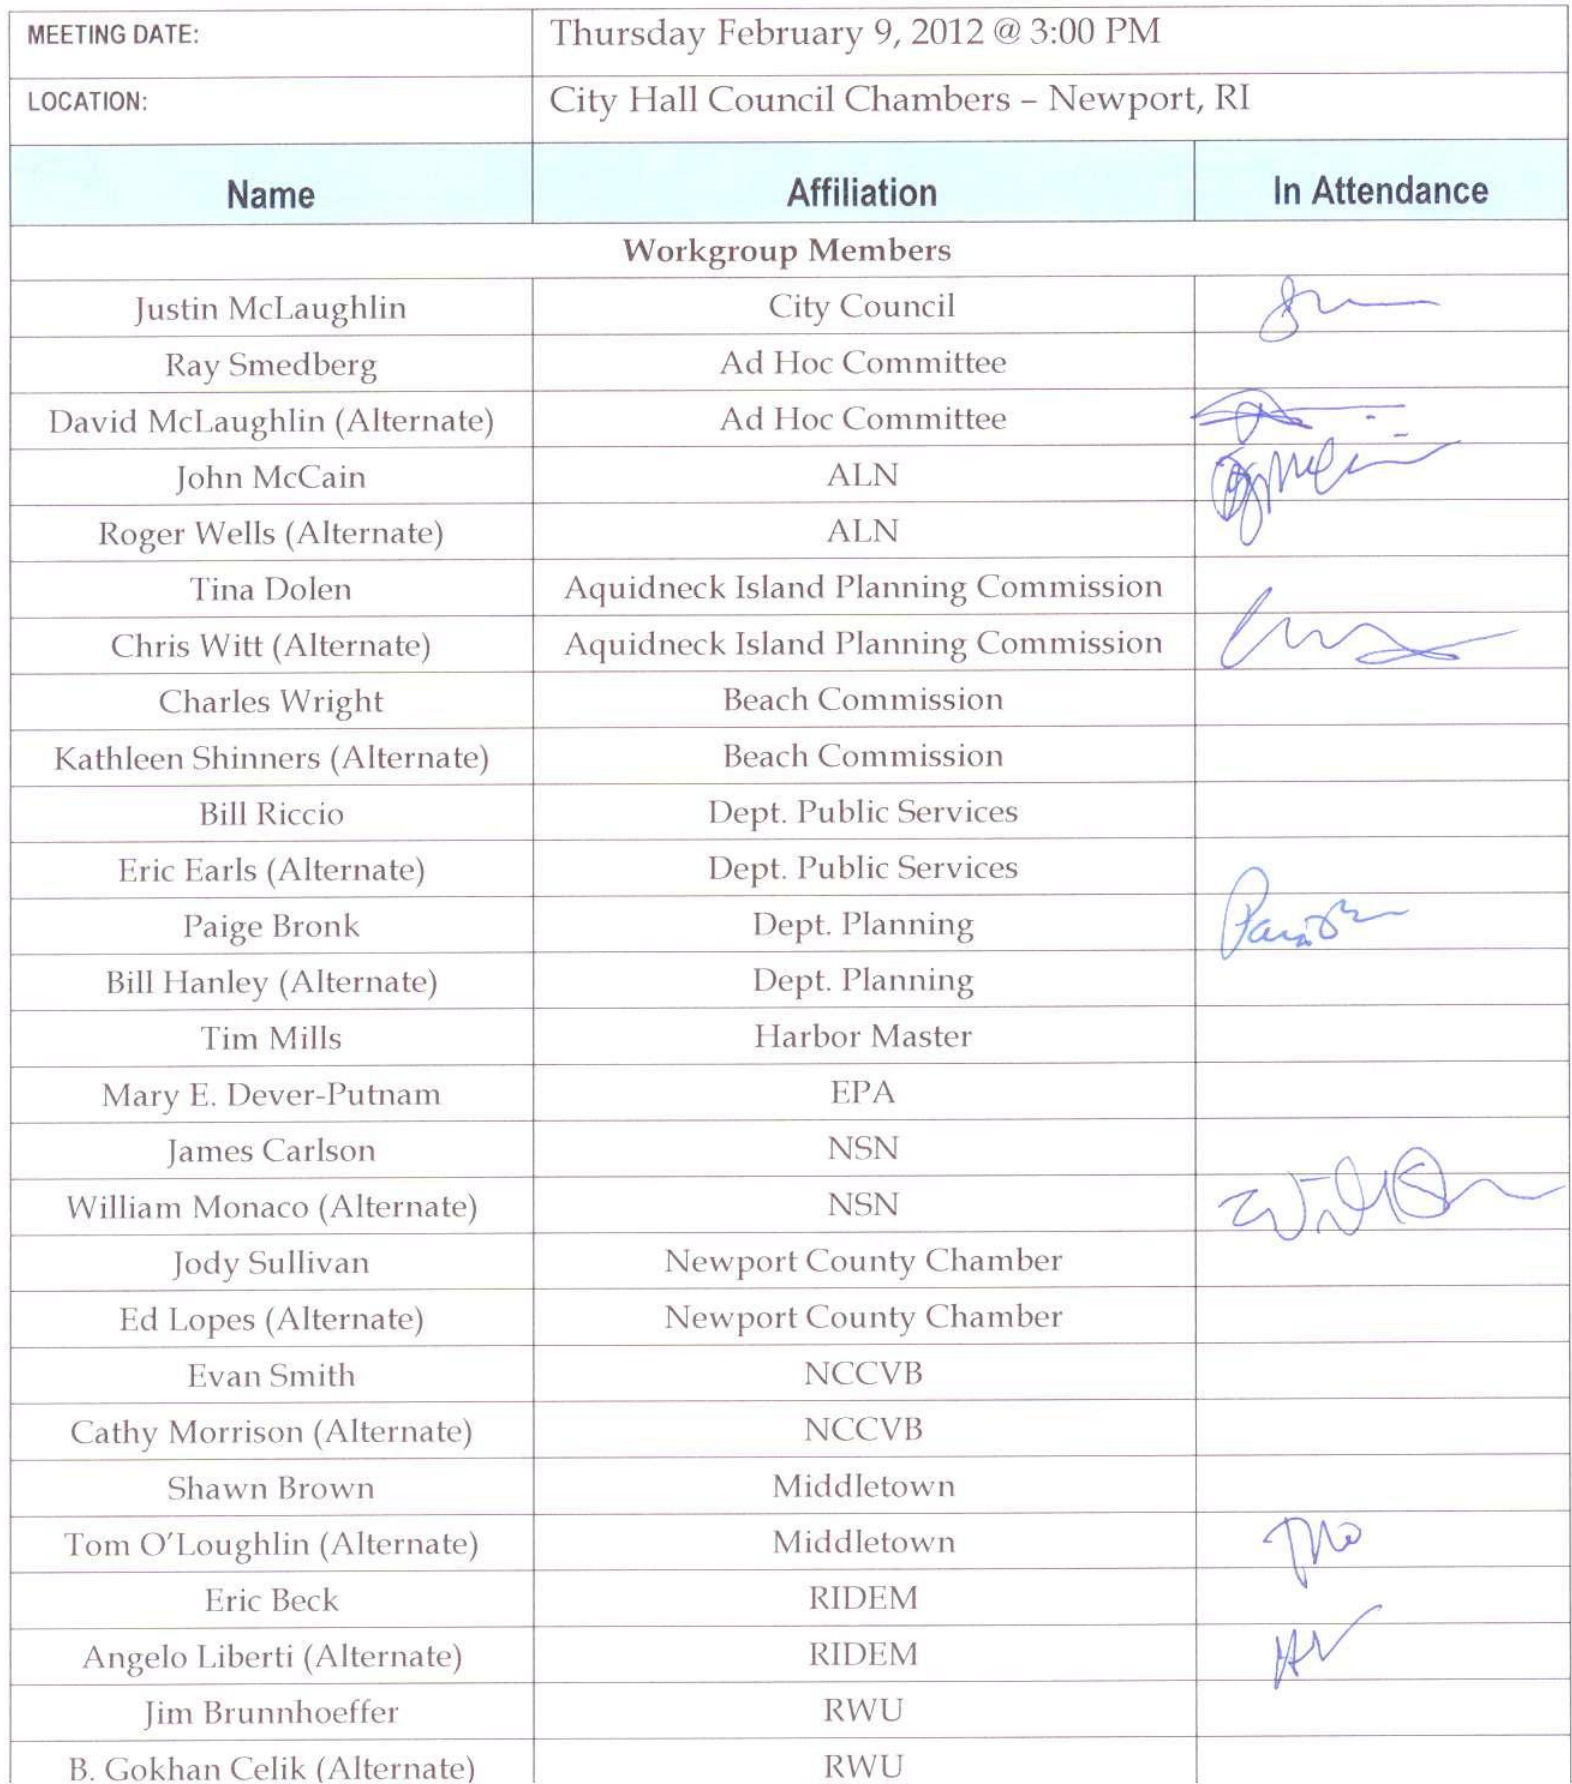 MEETING DATE: Thursday February 9, 2012 @ 3:00 PM
LOCATION: City Hall Council Chambers – Newport, RI
Name Affiliation In Attendance
Workgroup Members
Justin McLaughlin City Council
Ray Smedberg Ad Hoc Committee
David McLaughlin (Alternate) Ad Hoc Committee
John McCain ALN
Roger Wells (Alternate) ALN
Tina Dolen Aquidneck Island Planning Commission
Chris Witt (Alternate) Aquidneck Island Planning Commission
Charles Wright Beach Commission
Kathleen Shinners (Alternate) Beach Commission
Bill Riccio Dept. Public Services
Eric Earls (Alternate) Dept. Public Services
Paige Bronk Dept. Planning
Bill Hanley (Alternate) Dept. Planning
Tim Mills Harbor Master
Mary E. Dever-Putnam EPA
James Carlson NSN
William Monaco (Alternate) NSN
Jody Sullivan Newport County Chamber
Ed Lopes (Alternate) Newport County Chamber
Evan Smith NCCVB
Cathy Morrison (Alternate) NCCVB
Shawn Brown Middletown
Tom O'Loughlin (Alternate) Middletown
Eric Beck RIDEM
Angelo Liberti (Alternate) RIDEM
Jim Brunnhoeffer RWU
B. Gokhan Celik (Alternate) RWU